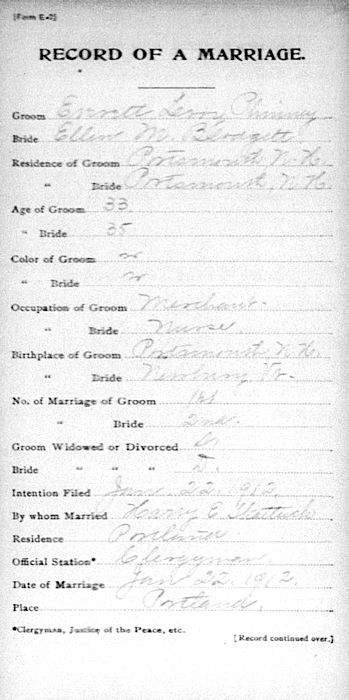 [Form E-2]
RECORD OF A MARRIAGE.
Groom Everett Leroy Phinney
Bride Ellen M. Blodgett
Residence of Groom Portsmouth, N. H.
" Bride Portsmouth, N. H.
Age of Groom 33
" Bride 35
Color of Groom W
" Bride W
Occupation of Groom Merchant.
" Bride Nurse.
Birthplace of Groom Portsmouth, N. H.
" Bride Newbury, Vt.
No. of Marriage of Groom 1st
" Bride 2nd.
Groom Widowed or Divorced
Bride " " " D.
Intention Filed Jan. 22, 1912.
By whom Married Harry E.
Residence Portland
Official Station* Clergyman.
Date of Marriage Jan 22, 1912.
Place Portland.
*Clergyman, Justice of the Peace, etc.
[Record continued over.]